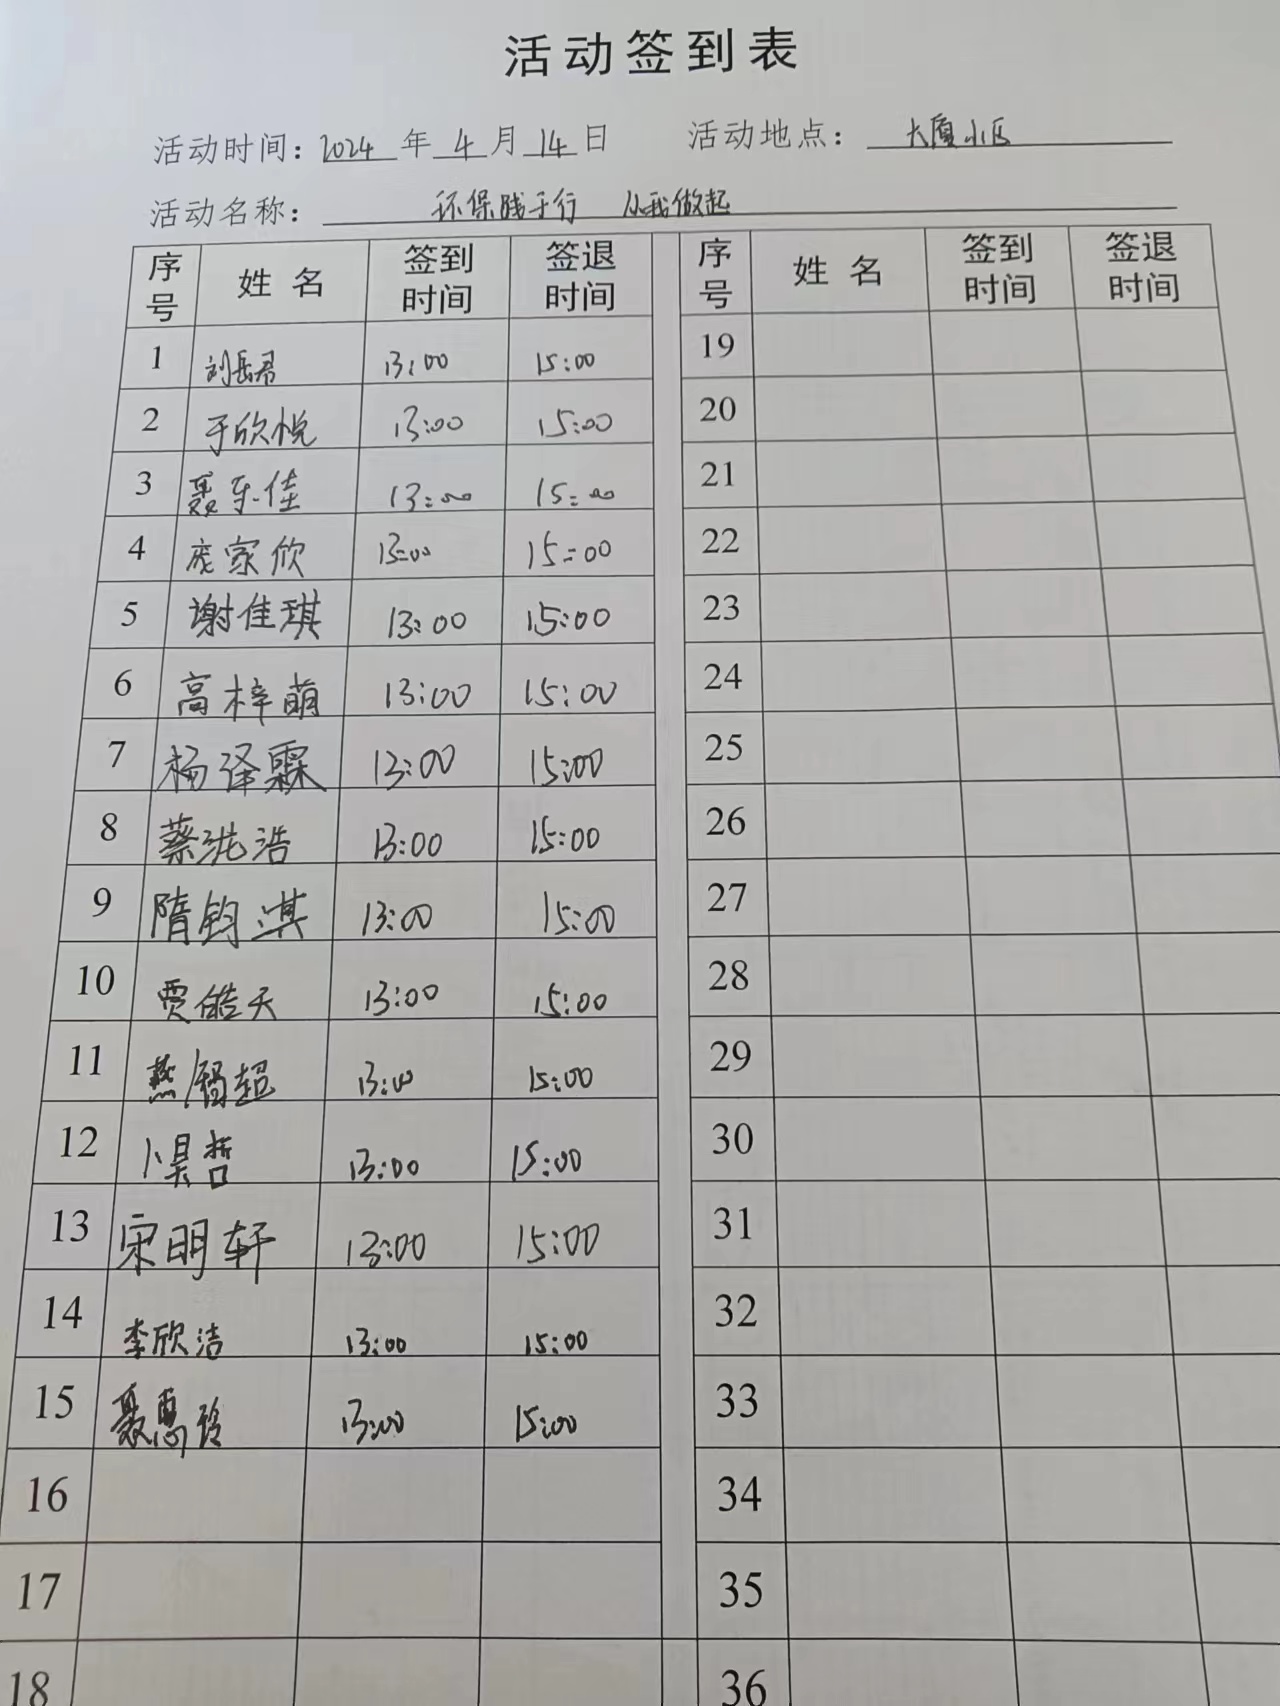 活动签到表
活动时间：2024年4月14日 活动地点：大厦小区
活动名称：环保践于行 从我做起
序号 姓名 签到时间 签退时间 序号 姓名 签到时间 签退时间
1 刘岳君 13:00 15:00 19
2 于欣悦 13:00 15:00 20
3 聂乐佳 13:00 15:00 21
4 庞家欣 13:00 15:00 22
5 谢佳琪 13:00 15:00 23
6 高梓萌 13:00 15:00 24
7 杨泽霖 13:00 15:00 25
8 13:00 15:00 26
9 隋钧淇 13:00 15:00 27
10 贾皓天 13:00 15:00 28
11 13:00 15:00 29
12 卜昊哲 13:00 15:00 30
13 宋明轩 13:00 15:00 31
14 李欣洁 13:00 15:00 32
15 聂惠玲 13:00 15:00 33
16 34
17 35
18 36